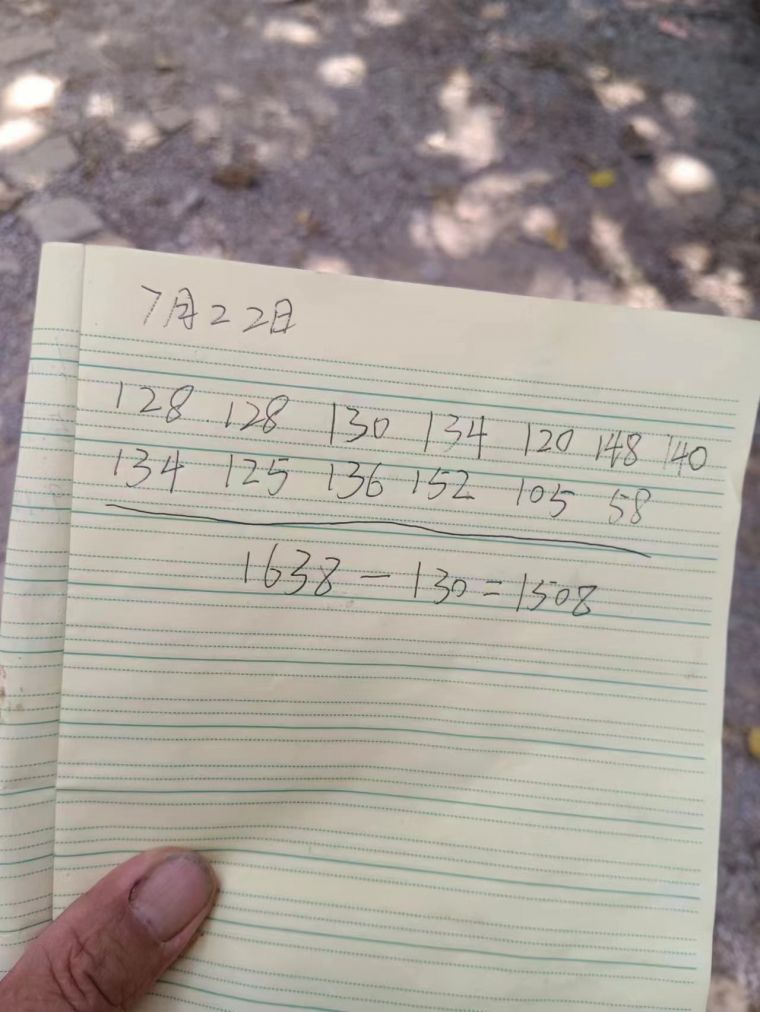 7月22日
128 128 130 134 120 148 140
134 125 136 152 105 58
1638 - 130 = 1508